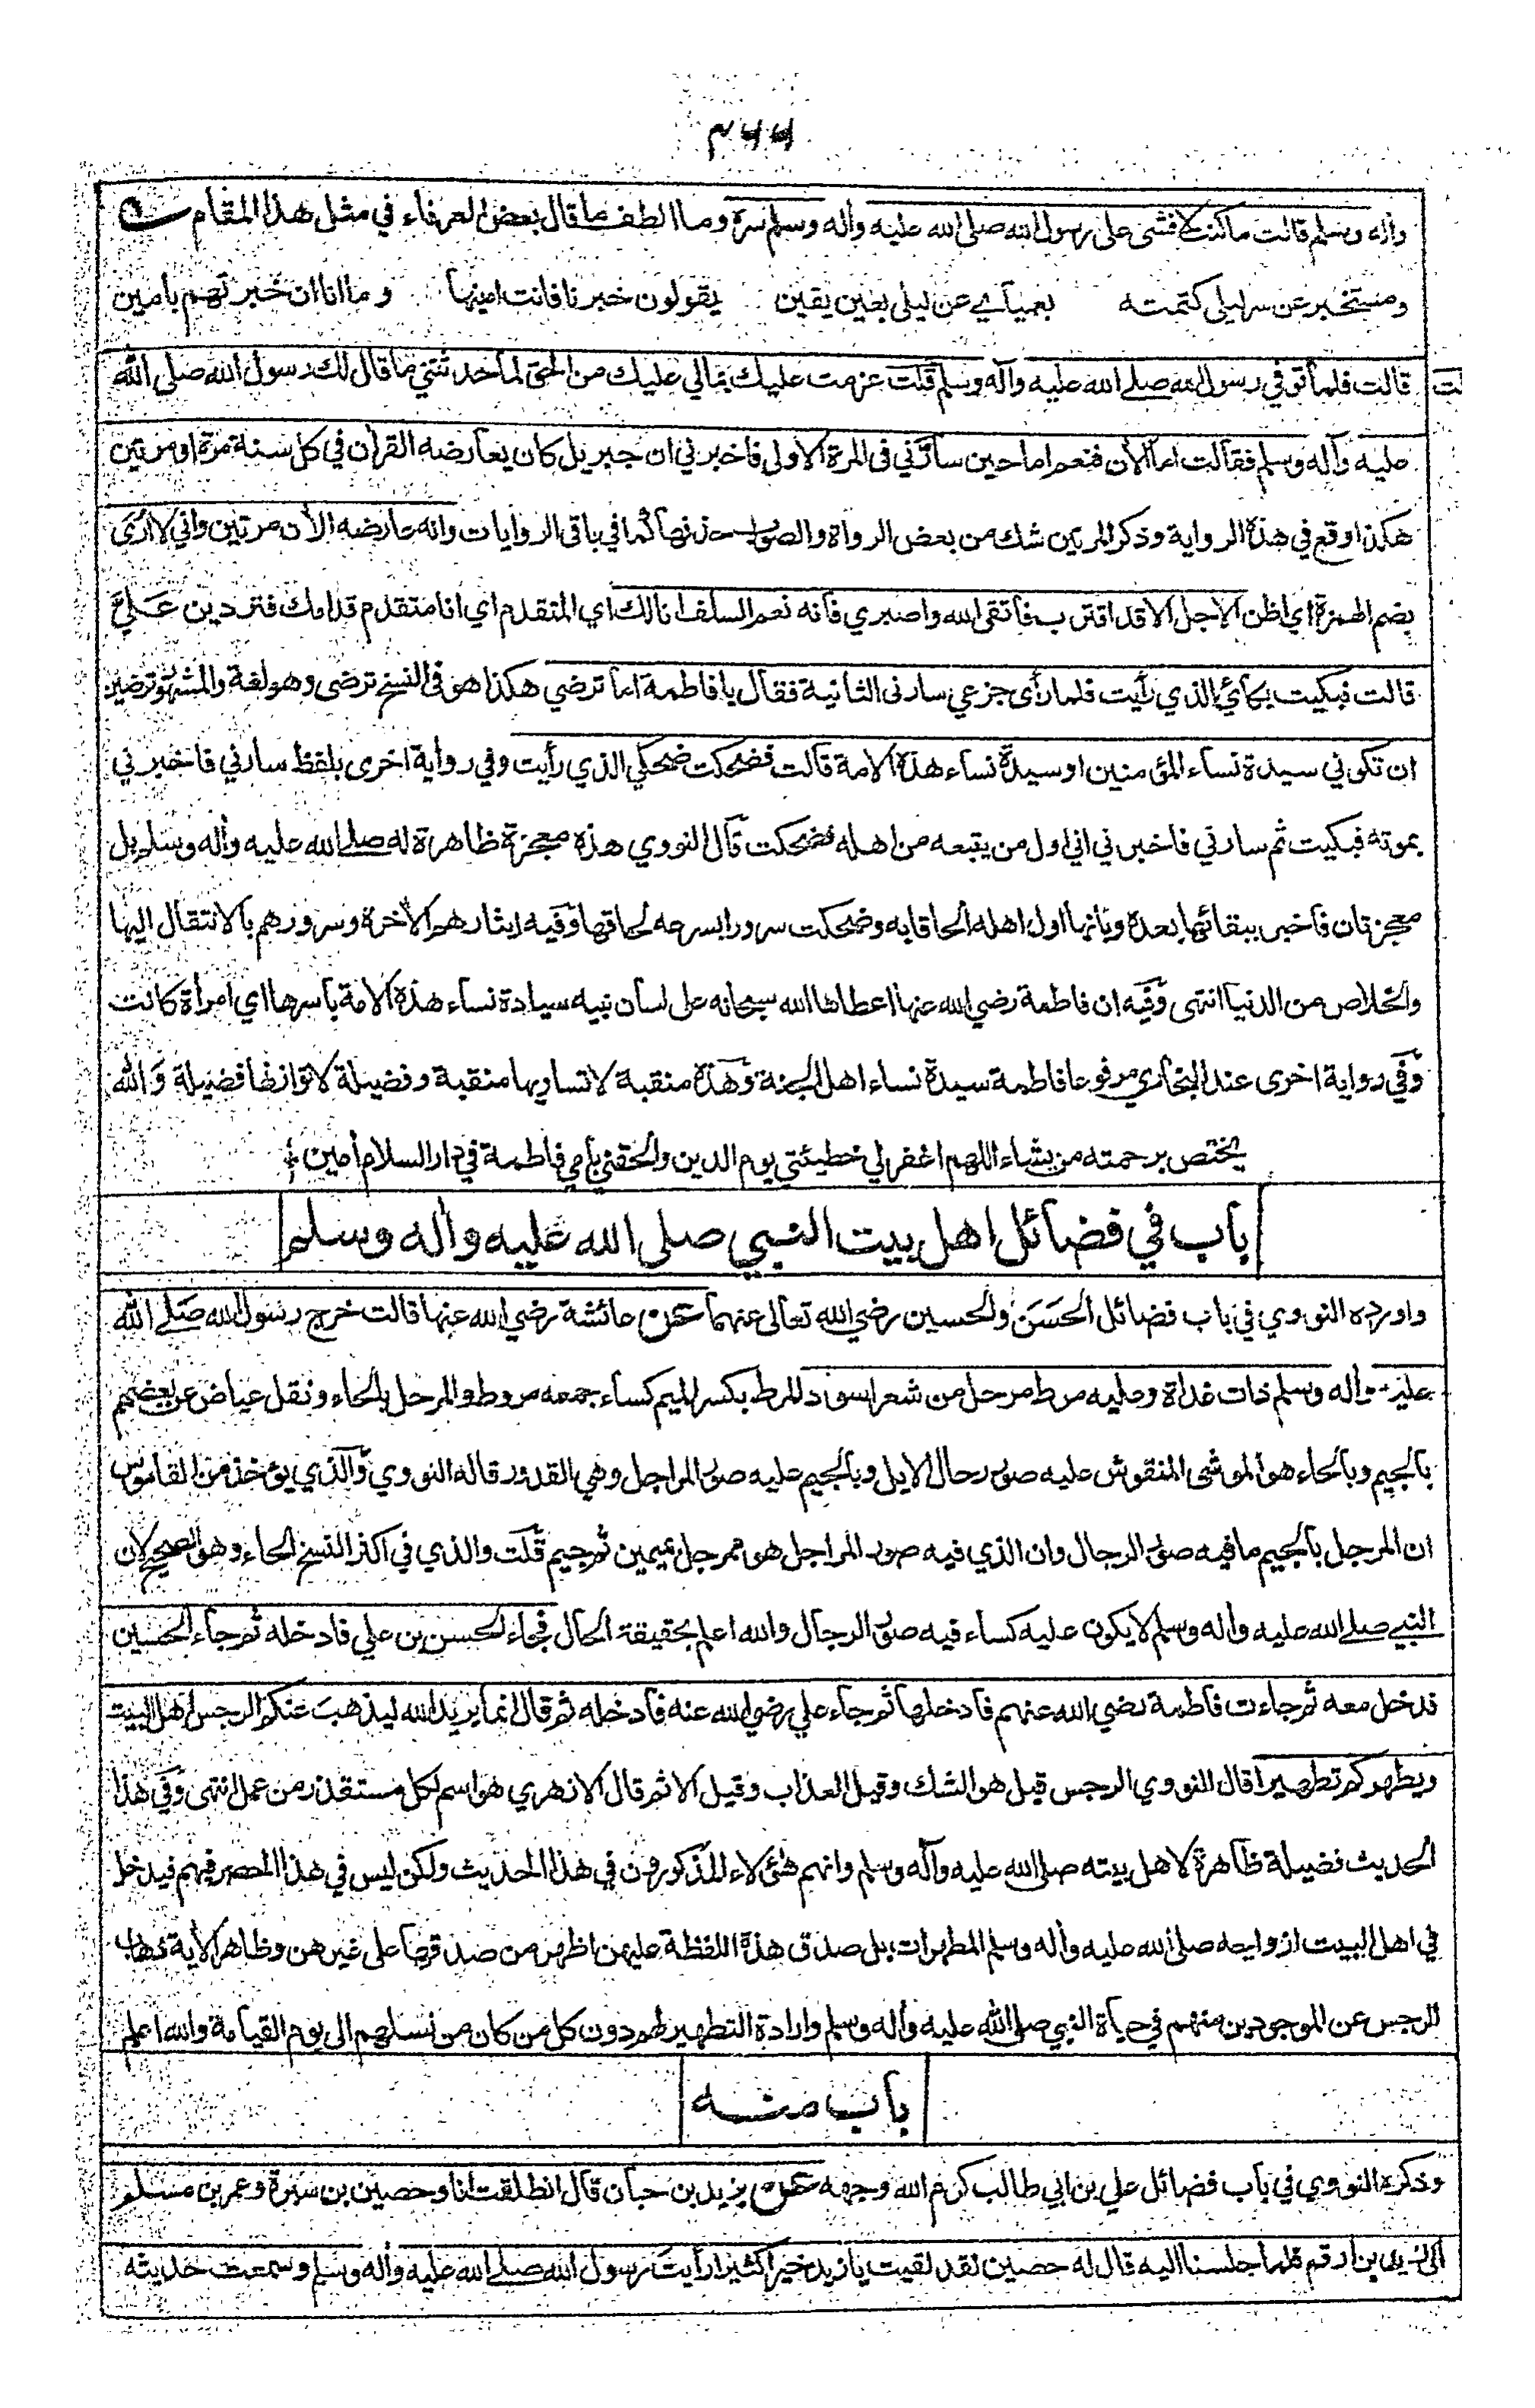 ٤٦٦
وآله وسلم قالت ما كنت لافشى على رسول الله صلى الله عليه وآله وسلم سره وما الطف ما قال بعض العرفاء في مثل هذا المقام
ومستخبر عن سر ليلى كتمته بعمياء عن ليلى بعين يقين يقولون خبرنا فانت امينها وما انا ان خبرتهم بامين
قالت فلما توفي رسول الله صلى الله عليه وآله وسلم قلت عزمت عليك بمالي عليك من الحق لما حدثتني ما قال لك رسول الله صلى الله
عليه وآله وسلم فقالت اما الأن فنعم اما حين سارّني في المرة الاولى فاخبرني ان جبريل كان يعارضه القرأن في كل سنة مرة او مرتين
هكذا وقع في هذه الرواية وذكر المرتين شك من بعض الرواة والصواب حذفها كما في باقي الروايات وانه عارضه الأن مرتين واني لا أُرَى
بضم الهمزة اي اظن الاجل الا قد اقترب فاتقي الله واصبري فانه نعم السلف انا لك اي المتقدم اي انا متقدم قدامك فتردين عَلَيَّ
قالت فبكيت بكائي الذي رأيت فلما رأى جزعي سارني الثانية فقال يا فاطمة اما ترضي هكذا هو في النسخ ترضى وهو لغة والمشهور ترضين
ان تكوني سيدة نساء المؤمنين او سيدة نساء هذه الامة قالت فضحكت ضحكي الذي رأيت وفي رواية اخرى بلفظ سارني فاخبرني
بموته فبكيت ثم سارني فاخبرني اني اول من يتبعه من اهله فضحكت قال النووي هذه معجزة ظاهرة له صلى الله عليه وآله وسلم بل
معجزتان فاخبر ببقائها بعده وبانها اول اهله لحاقا به وضحكت سرورا بسرعه لحاقها وفيه ايثارهم الأخرة وسرورهم بالانتقال اليها
والخلاص من الدنيا انتهى وفيه ان فاطمة رضي الله عنها اعطاها الله سبحانه على لسان نبيه سيادة نساء هذه الامة باسرها اي امرأة كانت
وفي رواية اخرى عند البخاري مرفوعا فاطمة سيدة نساء اهل الجنة وهذه منقبة لا تساويها منقبة وفضيلة لا توازنها فضيلة والله
يختص برحمته من يشاء اللهم اغفر لي خطيئتي يوم الدين والحقني بأمي فاطمة في دار السلام أمين
باب في فضائل اهل بيت النبي صلى الله عليه وأله وسلم
واورده النووي في باب فضائل الحَسَن والحسين رضي الله تعالى عنهما عن عائشة رضي الله عنها قالت خرج رسول الله صلى الله
عليه وأله وسلم ذات غداة وعليه مرط مرحل من شعر اسود المرط بكسر الميم كساء جمعه مروط والمرحل بالحاء ونقل عياض عن بعضهم
بالجيم وبالحاء هو الموشى المنقوش عليه صور رحال الابل وبالجيم عليه صور المراجل وهي القدور قاله النووي والذي يؤخذ من القاموس
ان المرجل بالجيم ما فيه صور الرجال وان الذي فيه صور المراجل هو ممرجل بميمين ثم جيم قلت والذي في اكثر النسخ الحاء وهو الصحيح لان
النبي صلى الله عليه وأله وسلم لا يكون عليه كساء فيه صور الرجال والله اعلم بحقيقة الحال فجاء الحسن بن علي فادخله ثم جاء الحسين
فدخل معه ثم جاءت فاطمة رضي الله عنهم فادخلها ثم جاء علي رضي الله عنه فادخله ثم قال انما يريد الله ليذهبَ عنكم الرجس اهل البيت
ويطهركم تطهيرا قال النووي الرجس قيل هو الشك وقيل العذاب وقيل الاثم قال الازهري هو اسم لكل مستقذر من عمل انتهى وفي هذا
الحديث فضيلة ظاهرة لاهل بيته صلى الله عليه وآله وسلم وانهم هؤلاء المذكورون في هذا الحديث ولكن ليس في هذا الحصر فيهم فيدخل
في اهل البيت ازواجه صلى الله عليه وأله وسلم المطهرات بل صدق هذه اللفظة عليهن اظهر من صدقها على غيرهن وظاهر الأية ذهاب
الرجس عن الموجودين منهم في حياة النبي صلى الله عليه وأله وسلم وارادة التطهير لهم دون كل من كان من نسلهم الى يوم القيامة والله اعلم
باب منه
وذكره النووي في باب فضائل علي بن ابي طالب كرم الله وجهه عن يزيد بن حبان قال انطلقت انا وحصين بن سبرة وعمر بن مسلم
الى زيد بن ارقم فلما جلسنا اليه قال له حصين لقد لقيت يا زيد خيرا كثيرا رأيتَ رسول الله صلى الله عليه وأله وسلم وسمعت حديثه